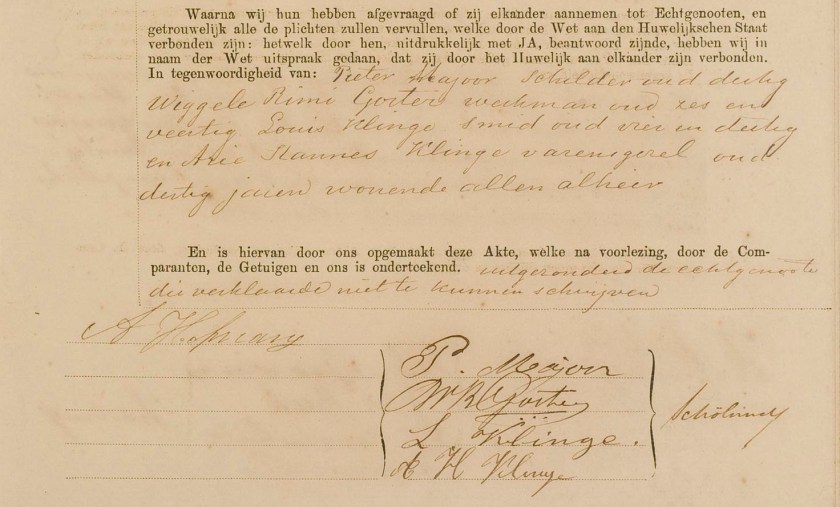 Waarna wij hun hebben afgevraagd of zij elkander aannemen tot Echtgenooten, en
getrouwelijk alle de plichten zullen vervullen, welke door de Wet aan den Huwelijkschen Staat
verbonden zijn: hetwelk door hen, uitdrukkelijk met JA, beantwoord zijnde, hebben wij in
naam der Wet uitspraak gedaan, dat zij door het Huwelijk aan elkander zijn verbonden.
In tegenwoordigheid van: Pieter Majoor Schilder oud dertig
Wiggele Rimi Gorter werkman oud zes en
veertig Louis Klinge Smid oud vier en dertig
en Arie Hannes Klinge varensgezel oud
dertig jaren wonende allen alhier
En is hiervan door ons opgemaakt deze Akte, welke na voorlezing, door de Com-
paranten, de Getuigen en ons is onderteekend. uitgezonderd de echtgenoote
die verklaarde niet te kunnen schrijven
A
P. Majoor
WR Gorter
L Klinge.
A H Klinge